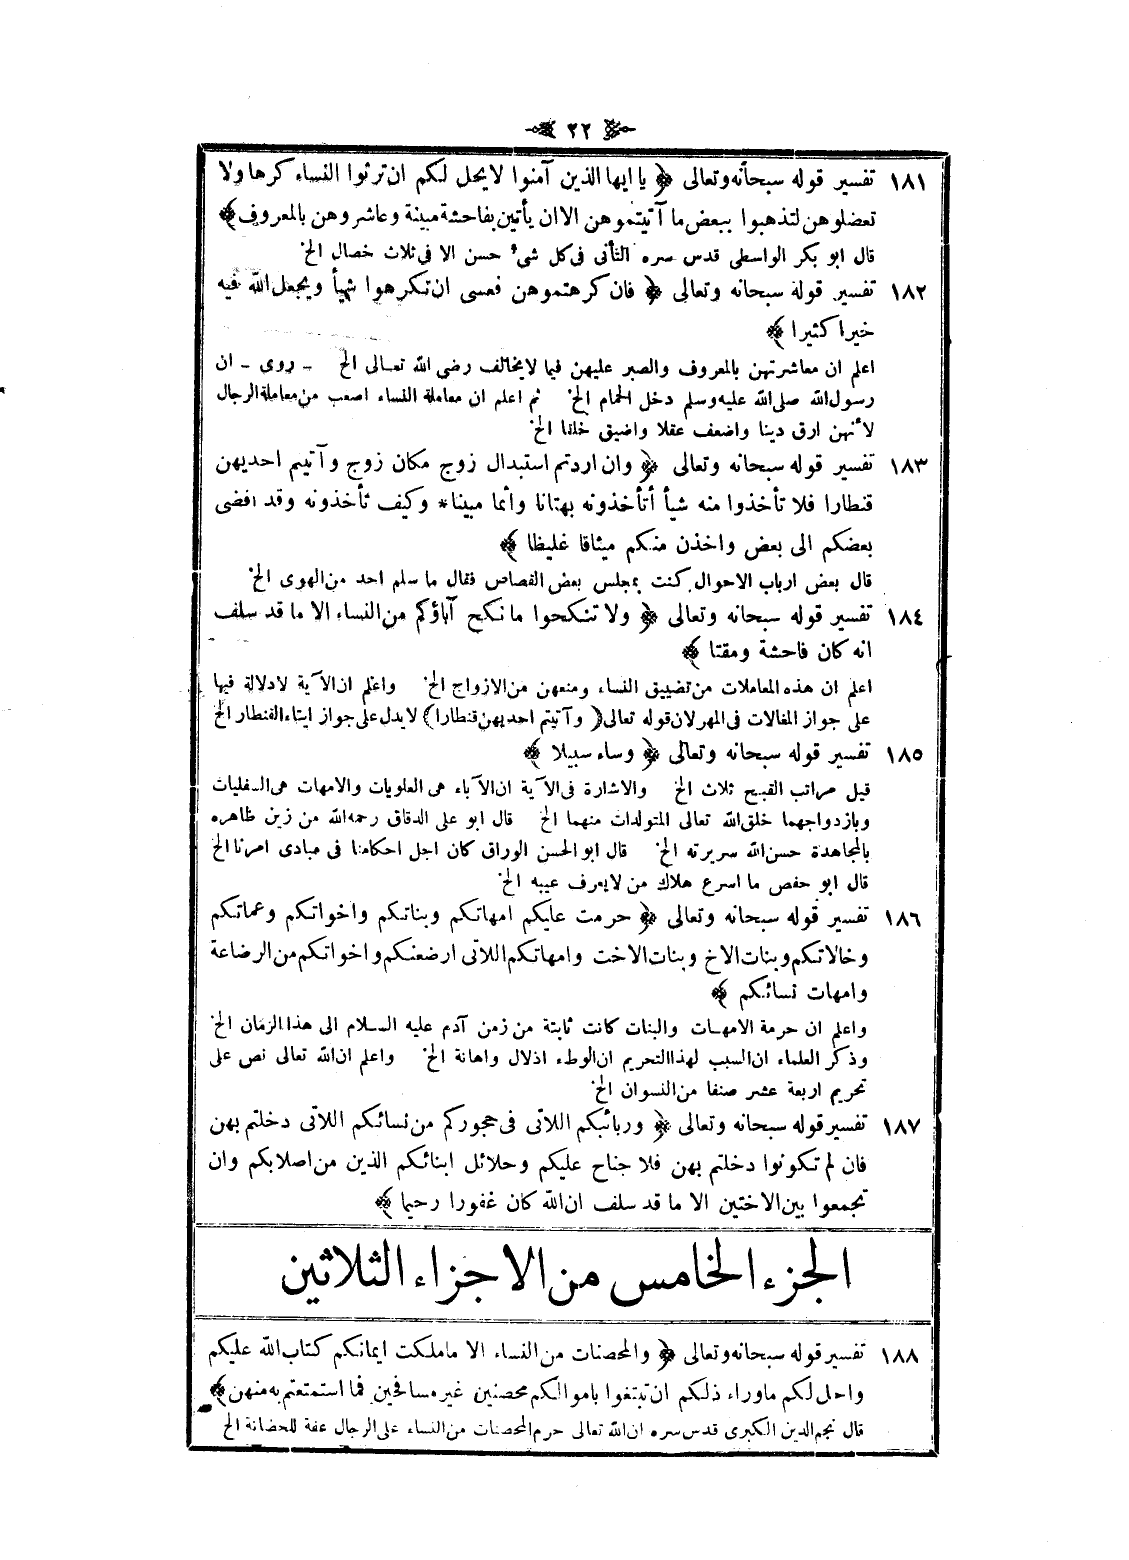 ٢٢
١٨١ تفسير قوله سبحانه وتعالى ﴿ يا ايها الذين آمنوا لايحل لكم ان ترثوا النساء كرها ولا
تعضلوهن لتذهبوا ببعض ما آتيتموهن الاان يأتين بفاحشة مبينة وعاشروهن بالمعروف ﴾
قال ابو بكر الواسطى قدس سره التأنى فى كل شىء حسن الا فى ثلاث خصال الخ
١٨٢ تفسير قوله سبحانه وتعالى ﴿ فان كرهتموهن فعسى ان تكرهوا شيأ ويجعل الله فيه
خيرا كثيرا ﴾
اعلم ان معاشرتهن بالمعروف والصبر عليهن فيما لايخالف رضى الله تعالى الخ ـ روى ـ ان
رسول الله صلى الله عليه وسلم دخل الحمام الخ ثم اعلم ان معاملة النساء اصعب من معاملة الرجال
لأنهن ارق دينا واضعف عقلا واضيق خلقا الخ
١٨٣ تفسير قوله سبحانه وتعالى ﴿ وان اردتم استبدال زوج مكان زوج وآتيتم احديهن
قنطارا فلا تأخذوا منه شيأ أتأخذونه بهتانا وأثما مبينا * وكيف تأخذونه وقد افضى
بعضكم الى بعض واخذن منكم ميثاقا غليظا ﴾
قال بعض ارباب الاحوال كنت بمجلس بعض القصاص فقال ما سلم احد من الهوى الخ
١٨٤ تفسير قوله سبحانه وتعالى ﴿ ولا تنكحوا ما نكح آباؤكم من النساء الا ما قد سلف
انه كان فاحشة ومقتا ﴾
اعلم ان هذه المعاملات من تضييق النساء ومنعهن من الازواج الخ واعلم ان الآية لادلالة فيها
على جواز المغالات فى المهر لان قوله تعالى (وآتيتم احديهن قنطارا) لايدل على جواز ايتاء القنطار الخ
١٨٥ تفسير قوله سبحانه وتعالى ﴿ وساء سبيلا ﴾
قيل مراتب القبح ثلاث الخ والاشارة فى الآية ان الآباء هى العلويات والامهات هى السفليات
وبازدواجهما خلق الله تعالى المتولدات منهما الخ قال ابو على الدقاق رحمه الله من زين ظاهره
بالمجاهدة حسن الله سريرته الخ قال ابو الحسن الوراق كان اجل احكامنا فى مبادى امرنا الخ
قال ابو حفص ما اسرع هلاك من لايعرف عيبه الخ
١٨٦ تفسير قوله سبحانه وتعالى ﴿ حرمت عليكم امهاتكم وبناتكم واخواتكم وعماتكم
وخالاتكم وبنات الاخ وبنات الاخت وامهاتكم اللاتى ارضعنكم واخواتكم من الرضاعة
وامهات نسائكم ﴾
واعلم ان حرمة الامهات والبنات كانت ثابتة من زمن آدم عليه السلام الى هذا الزمان الخ
وذكر العلماء ان السبب لهذا التحريم ان الوطء اذلال واهانة الخ واعلم ان الله تعالى نص على
تحريم اربعة عشر صنفا من النسوان الخ
١٨٧ تفسير قوله سبحانه وتعالى ﴿ وربائبكم اللاتى فى حجوركم من نسائكم اللاتى دخلتم بهن
فان لم تكونوا دخلتم بهن فلا جناح عليكم وحلائل ابنائكم الذين من اصلابكم وان
تجمعوا بين الاختين الا ما قد سلف ان الله كان غفورا رحيما ﴾
الجزء الخامس من الاجزاء الثلاثين
١٨٨ تفسير قوله سبحانه وتعالى ﴿ والمحصنات من النساء الا ماملكت ايمانكم كتاب الله عليكم
واحل لكم ماوراء ذلكم ان تبتغوا باموالكم محصنين غير مسافحين فما استمتعتم به منهن ﴾
قال نجم الدين الكبرى قدس سره ان الله تعالى حرم المحصنات من النساء على الرجال عفة للحضانة الخ